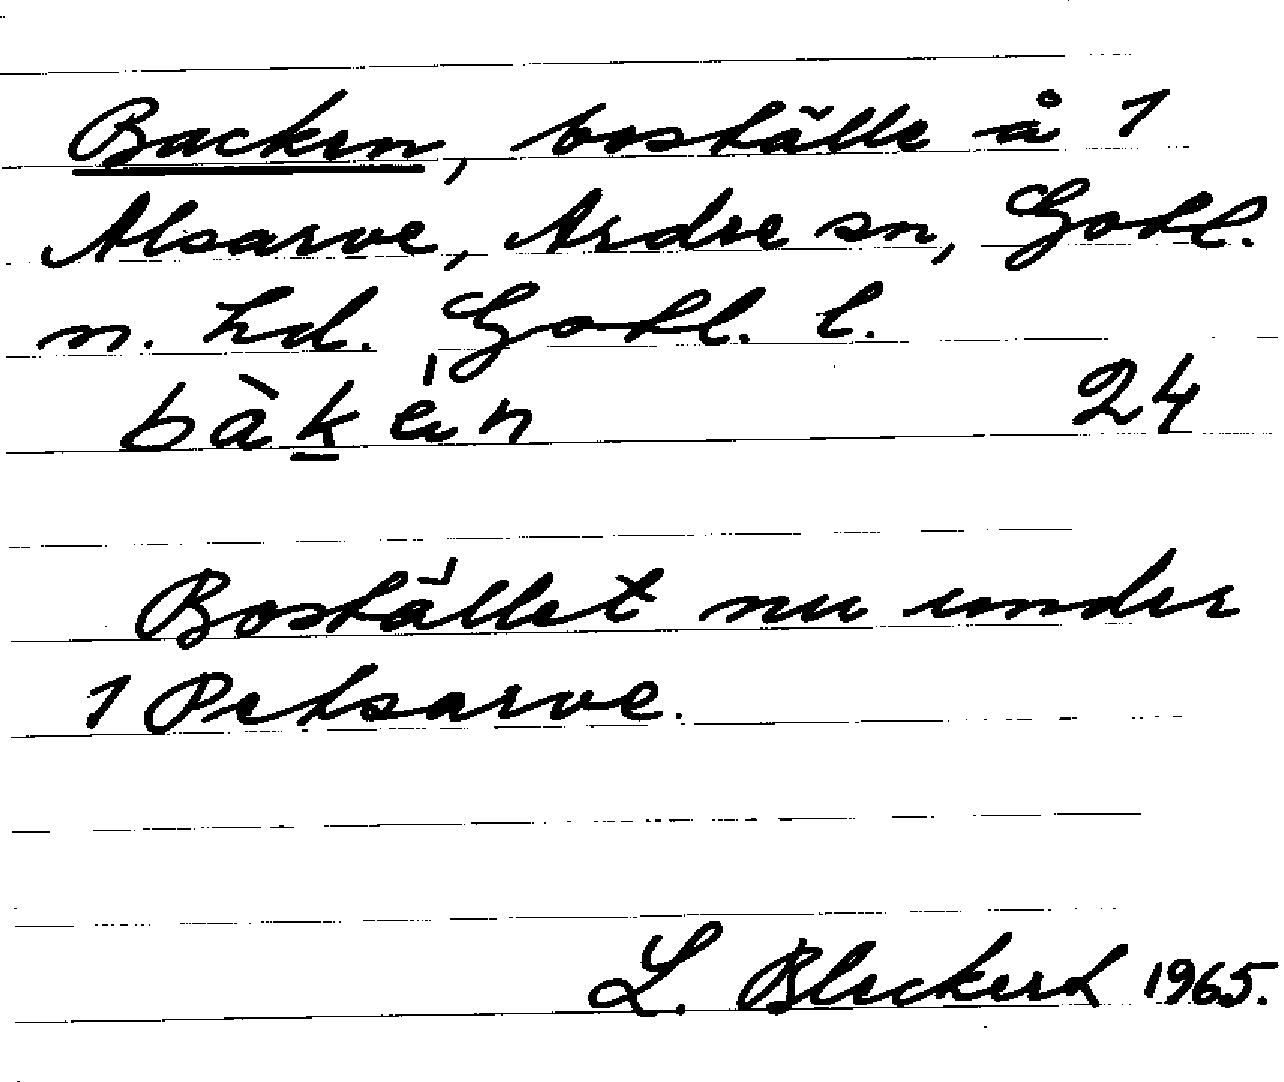 Backen, boställe å 1
Alsarve, Ardre sn, Gotl.
n. hd. Gotl. l.
bàkến 24
Bostället nu under
1 Petsarve.
L. Bleckert 1965.